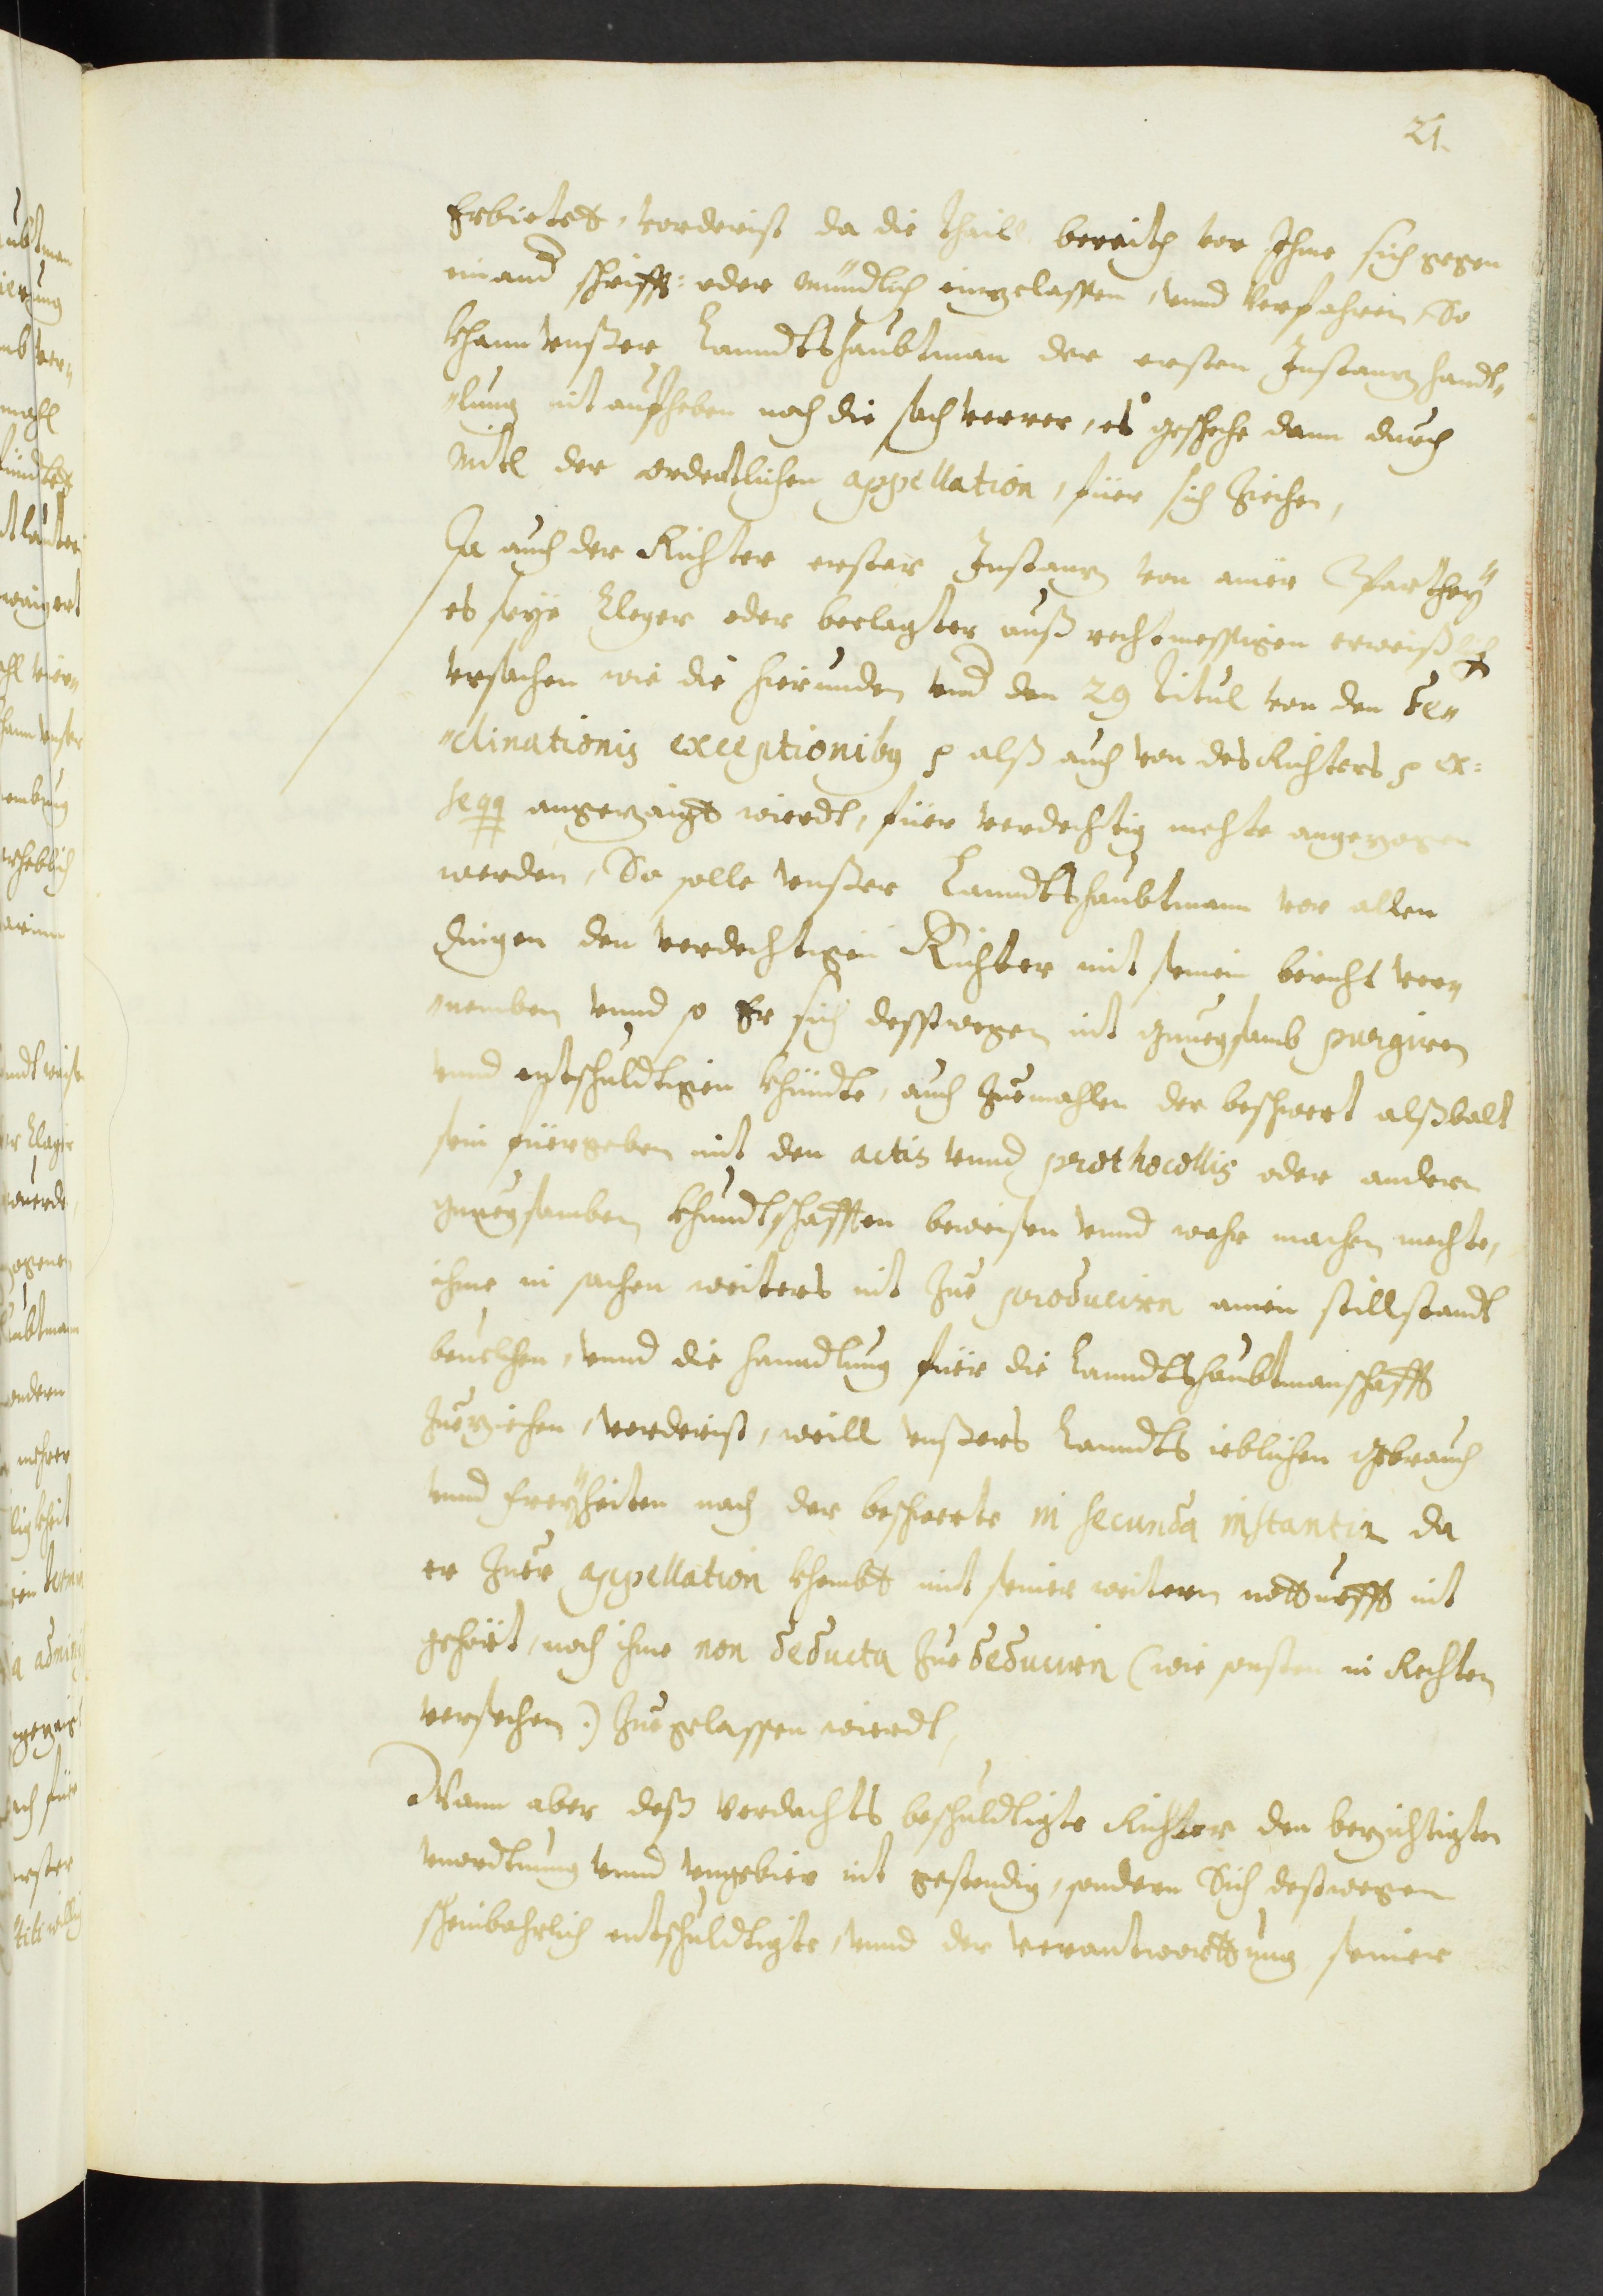 21.
Erbietet, vorderist da die thail bereith vor Ihme sich gegen
einand schrifft: oder mündlich eingelassen, vnnd verfahren, So
khann vnßer Lanndtshaubtman der ersten Instanz handt„
„lung nit aufheben noch die sach verrer, es geschehe dann durch
mitl der ordentlichen appellation, füer sich ziechen,
Da auch der Richter erster Instanz von ainer Parthey
es seye Kleger oder beclagter auß rechtmessigen erweißlich
vrsachen wie die hierunden vnd den 29 titul von den de„
„clinationis exceptionibus alß auch von des Richters ex:
seqq angezaigt wierdt, füer verdechtig mechte angezogen
werden, So solle vnßer Lanndtshaubtmann vor allen
dingen den verdechtigen Richter mit seinem bericht ver„
„nemben vnnd so Er sich desstwegen nit gnuegsamb purgiren
vnnd entschuldigen khündte, auch zuemahlen der beschwert alßbalt
sein fuergeben mit den actis vnnd prothocollis oder andern
gnuegsamben khundtschafften beweisen vnnd wahr machen mechte,
ihme in sachen weiters nit zue procedirn ainen stillstandt
beuelchen, vnnd die hanndlung füer die Lanndtshaubtmanschafft
zueziechen, vorderist, weill vnßers Lanndts ieblichen gebrauch
vnnd freyheiten nach der beschwerte in secunda instantia da
er zuer appellation khombt mit seiner weitern notturfft nit
gehört, noch ihme non deducta zue deducirn (wie sonsten in Rechten
versechen:) zuegelassen wierdt,
Wann aber deß verdachts beschuldigte Richter den bezichtigten
vnordnung vnnd vngebier nit gestendig, sondern Sich destwegen
scheinbahrlich entschuldigte, vnnd der verantworttung seiner